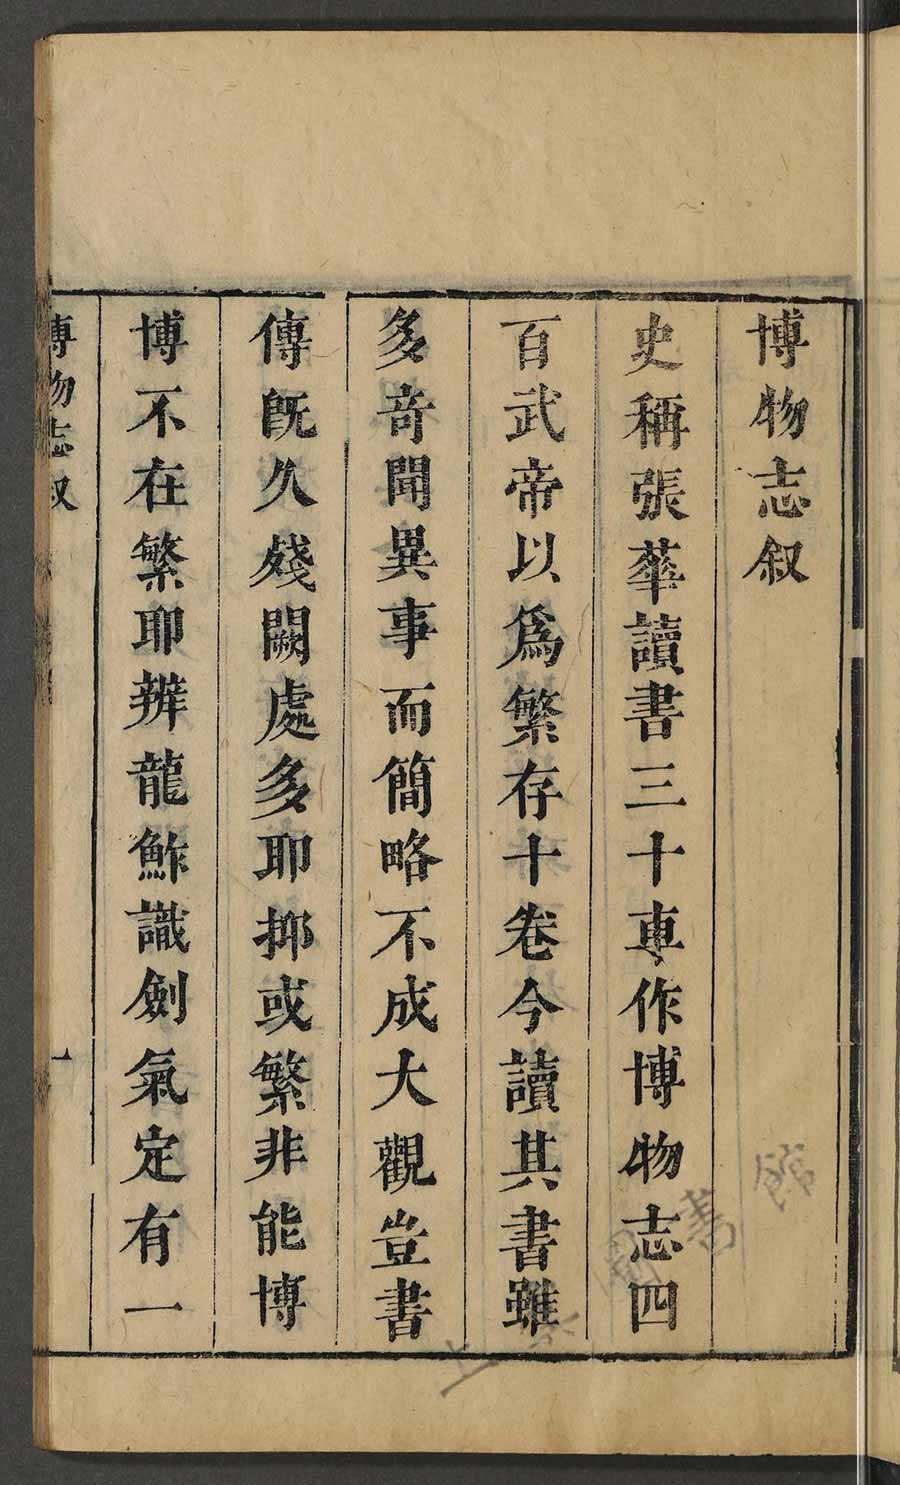 博物志叙
史稱張華讀書三十車作博物志四
百武帝以爲繁存十卷今讀其書雖
多奇聞異事而簡略不成大觀豈書
傳既久殘闕處多耶抑或繁非能博
博不在繁耶辨龍鮓識劍氣定有一
博物志叙
一
上海圖書館